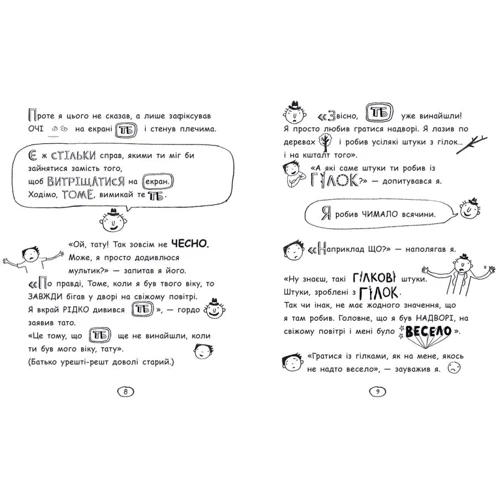 Проте я цього не сказав, а лише зафіксував
ОЧІ на екрані ТБ і стенув плечима.
Є ж СТІЛЬКИ справ, якими ти міг би
зайнятися замість того,
щоб ВИТРІЩАТИСЯ на екран.
Ходімо, ТОМЕ, вимикай те ТБ.
«Ой, тату! Так зовсім не ЧЕСНО.
Може, я просто додивлюся
мультик?» — запитав я його.
«По правді, Томе, коли я був твого віку, то
ЗАВЖДИ бігав у дворі на свіжому повітрі.
Я вкрай РІДКО дивився ТБ», — гордо
заявив тато.
«Це тому, що ТБ ще не винайшли, коли
ти був мого віку, тату».
(Батько урешті-решт доволі старий.)
8
«Звісно, ТБ уже винайшли!
Я просто любив гратися надворі. Я лазив по
деревах і робив усілякі штуки з гілок...
на кшталт того».
«А які саме штуки ти робив із
ГІЛОК?» — допитувався я.
Я робив ЧИМАЛО всячини.
«Наприклад ЩО?» — наполягав я.
«Ну знаєш, такі ГІЛКОВІ штуки.
Штуки, зроблені з ГІЛОК.
Так чи інак, не має жодного значення, що
я там робив. Головне, що я був НАДВОРІ, на
свіжому повітрі і мені було ВЕСЕЛО».
«Гратися із гілками, як на мене, якось
не надто весело», — зауважив я.
9